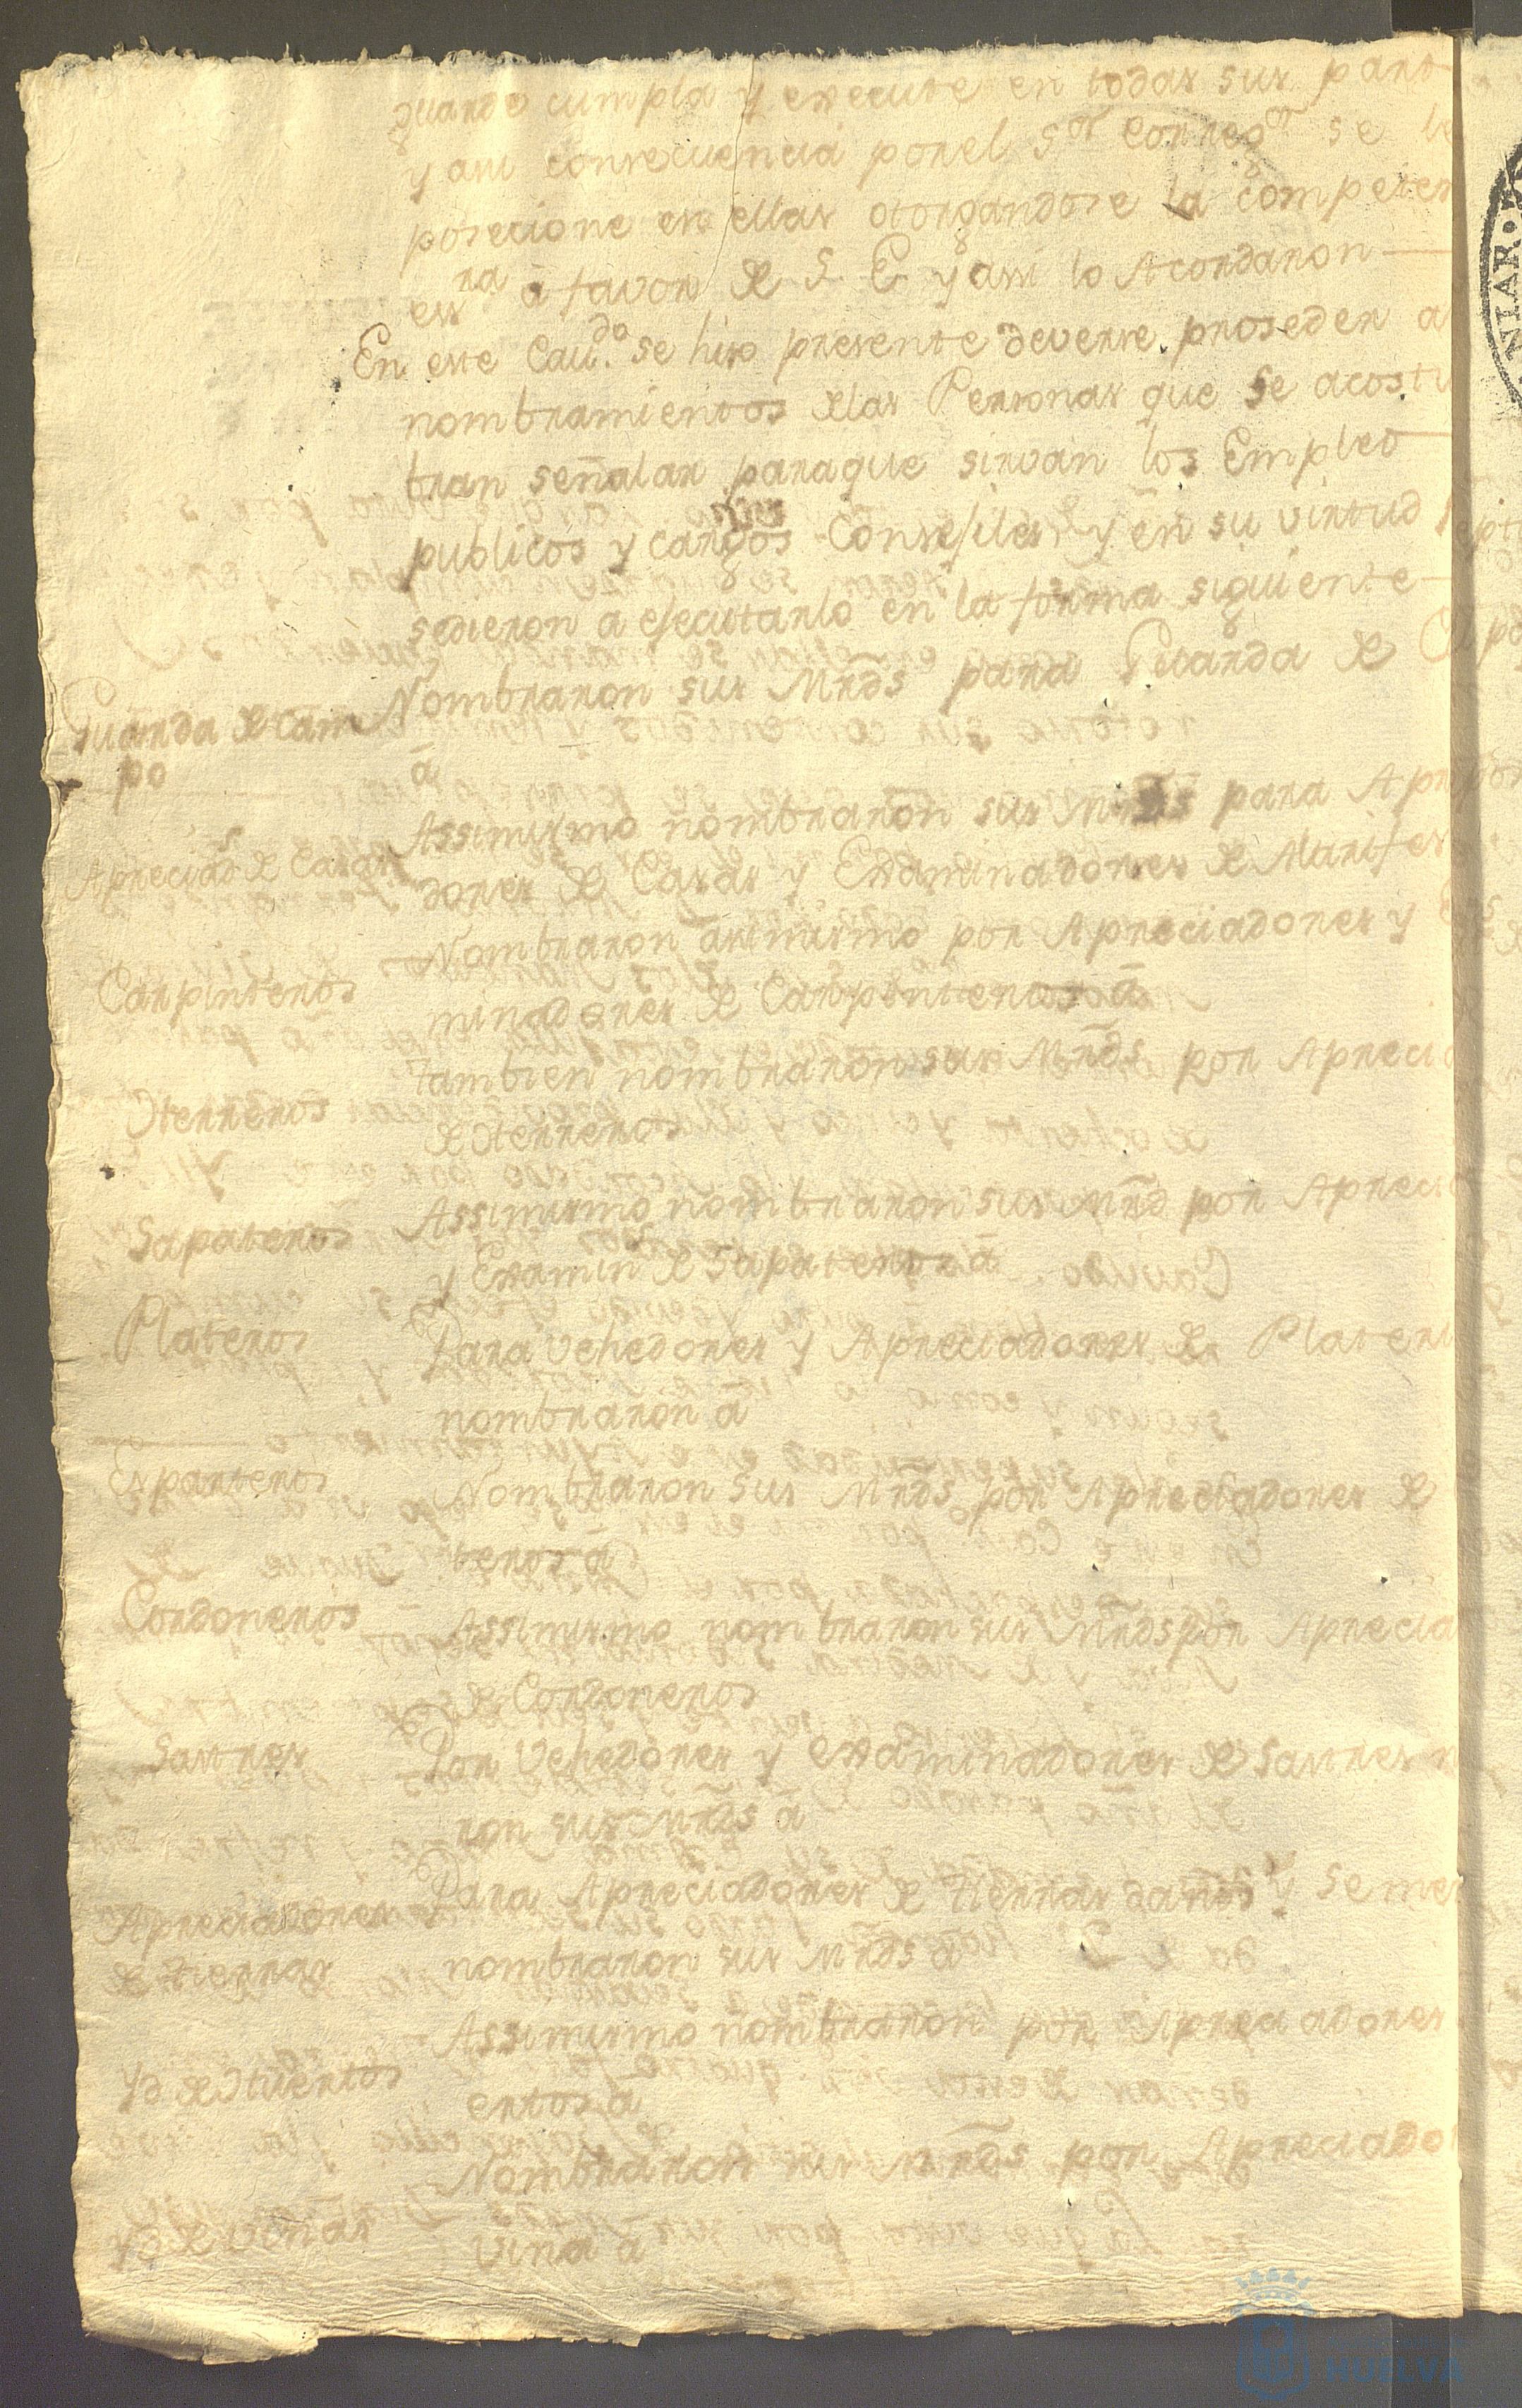 guarde cumpla y execute en todas sus part
y asu consecuencia por el Sor Corregor se le
posecione en ellas otorgandose la competen
essra a favor de S. E y assi lo Acordaron
En este Cavdo. se hiso presente deverse proseder a
nombramientos de las Personas que se acostu
bran señalar para que sirvan los Empleo
publicos y cargos Consejiles y en su virtud
sedieron a ejecutarlo en la forma siguiente
Guarda de Cam
po
Nombraron sus Mrds para Guarda de
a
Apreciads de Casas
Assimismo nombraron sus Mrds para Apre
dores de Casas y Examinadores de Alarifes
Carpinteros
Nombraron asimismo por Apreciadores y
minadores de Carpinteros a
Herreros
Tambien nombraron sus Mrds por Aprecia
de Herreros
Sapateros
Assimismo nombraron sus Mrd por Aprecia
y Examin de Sapateros a
Plateros
Para Vehedores y Apreciadores de Plater
nombraron a
Esparteros
Nombraron sus Mrds por Apreciadores de
teros a
Cordoneros
Assimismo nombraron sus Mrds por Aprecia
de Cordoneros
Sastres
Por Vehedores y examinadores de Sastres n
ron sus Mrds a
Apreciadores
de tierras
Para Apreciadores de Tierras daños y seme
nombraron sus Mrds a
Yd de Huertos
Assimismo nombraron por Apreciadores
ertos a
Yd de Viñas
Nombraron sus Mrds por Apreciador
Viña a
NIAR
HUELVA